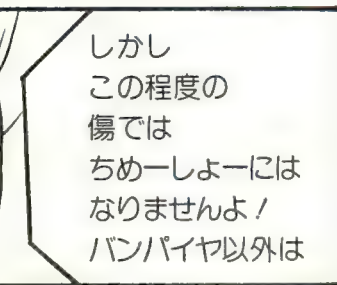 しかし
この程度の
傷では
ちめーしょーには
なりませんよ！
バンパイヤ以外は